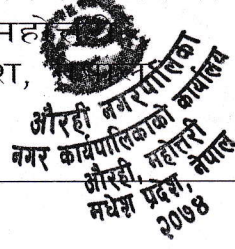 महोत्तरी
श,
औरही नगरपालिका
नगर कार्यपालिकाको कार्यालय
औरही, महोत्तरी
मधेश प्रदेश, नेपाल
२०७४